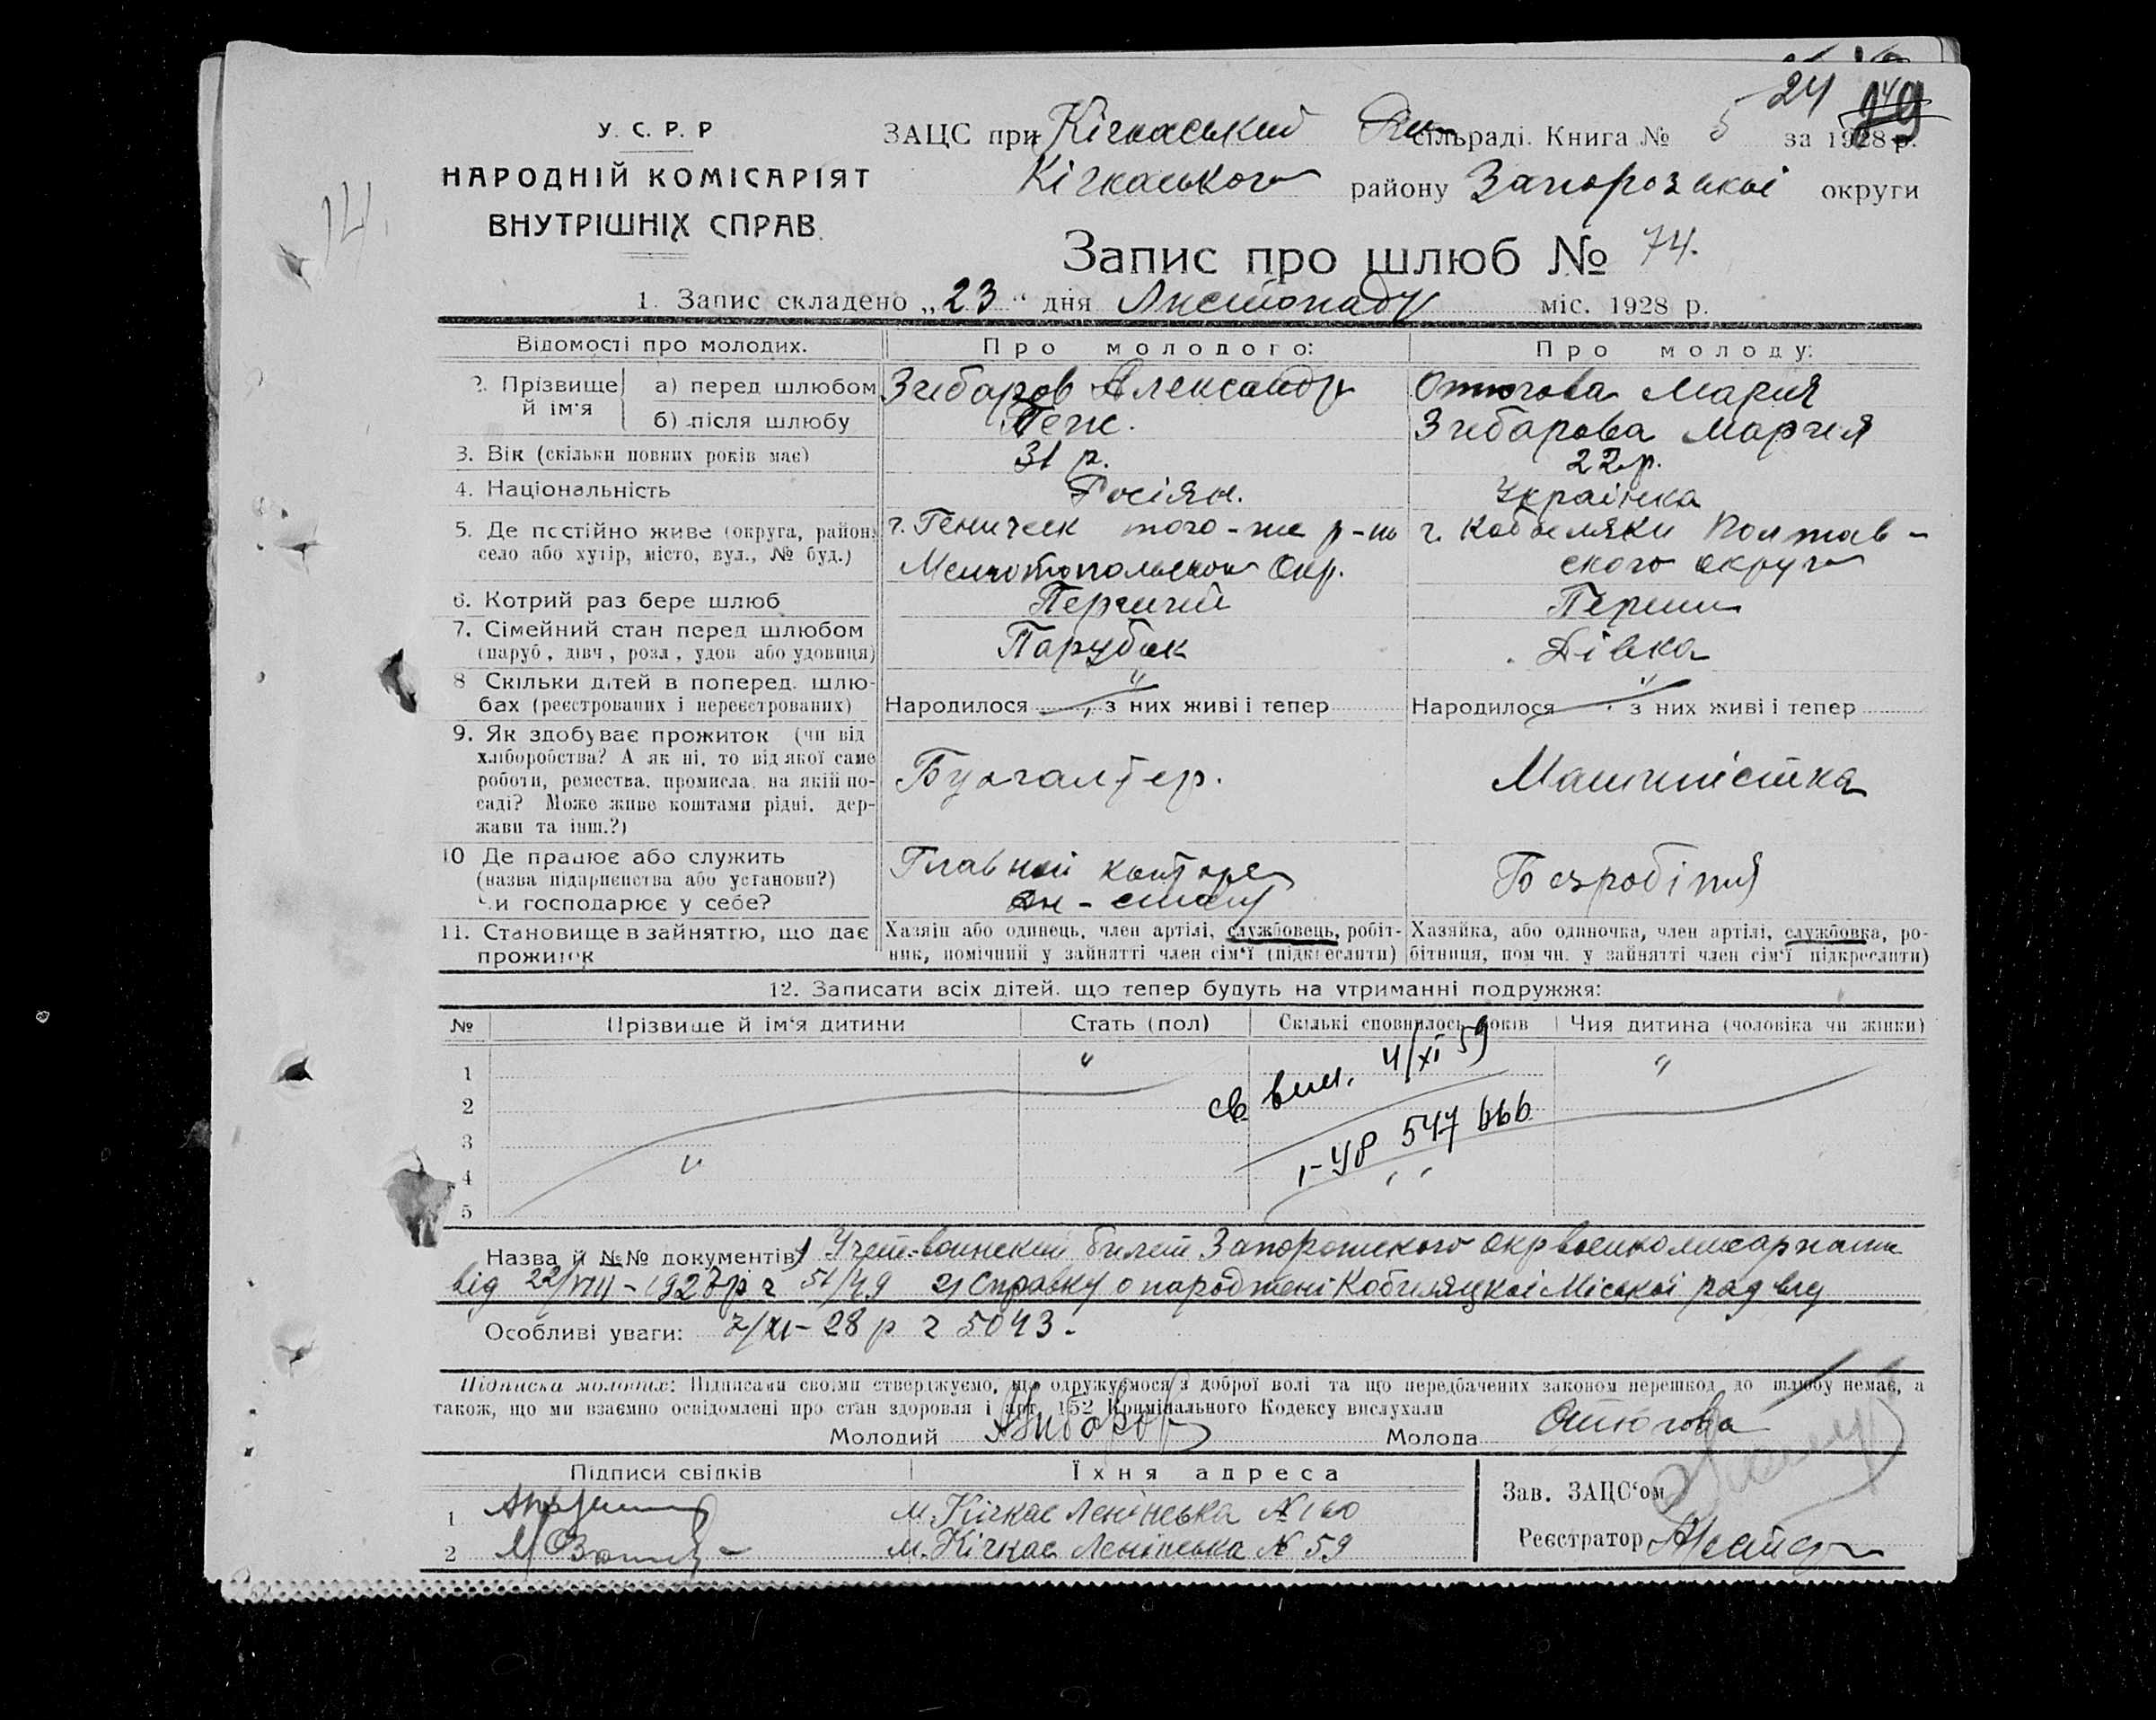 24 149
У. С. Р. Р
НАРОДНІЙ КОМІСАРІЯТ
ВНУТРІШНІХ СПРАВ.
14.
ЗАЦС при Кічкаський сільраді. Книга № 5 за 1928 р.
Кічкаського району Запорозької округи
Запис про шлюб № 74.
1. Запис складено „23" дня Листопаду міс. 1928 р.
Відомості про молодих. Про молодого: Про молоду:
2. Прізвище й ім'я а) перед шлюбом Знбаров Александр Отюгова Мария
б) після шлюбу Теж. Знбарова Мария
3. Вік (скільки повних років має) 31 р. 22 р.
4. Національність Росіян. Українка
5. Де постійно живе (округа, район, г. Геническ того-же р-на г. Кобеляки Полтав-
село або хутір, місто, вул., № буд.) Мелитопольской Окр. ского округа
6. Котрий раз бере шлюб Перший Перший
7. Сімейний стан перед шлюбом Парубак Дівка
(паруб, дівч, розл, удов або удовиця)
8 Скільки дітей в поперед. шлю-
бах (реєстрованих і нереєстрованих) Народилося з них живі і тепер Народилося з них живі і тепер
9. Як здобуває прожиток (чи від
хліборобства? А як ні, то від якої саме
роботи, ремества, промисла, на якій по- Бухгалтер. Машинистка
саді? Може живе коштами рідні, дер-
жави та інш.?)
10 Де працює або служить Главной конторе Безробітня
(назва підприєнства або установи?)
Чи господарює у себе?
11. Становище в зайняттю, що дає Хазяїн або одинець, член артілі, службовець, робіт- Хазяйка, або одиночка, член артілі, службовка, ро-
прожиток ник, помічний у зайнятті член сім'ї (підкреслити) бітниця, пом чн. у зайнятті член сім'ї підкреслити)
12. Записати всіх дітей, що тепер будуть на утриманні подружжя:
№ Прізвище й ім'я дитини Стать (пол) Скількі сповнилось років Чия дитина (чоловіка чи жінки)
1
2
3
4
5
св вид. 4/XI 59
547 666
Назва й №№ документів 1) Учет-воинский билет Запорожского окрвоенкомисариата
від 22/VIII-1927р г 51/49 2) Справку о народжені Кобиляцкої Міської рад від
Особливі уваги: 7/XI-28 р г 5043.
Підписка молодих: Підписами своїми стверджуємо, що одружуємося з доброї волі та що передбачених законом перешкод до шлюбу немає, а
також, що ми взаємно освідомлені про стан здоровля і арт. 152 Кримінального Кодексу вислухали
Молодий Молода Отюгова
Підписи свідків Їхня адреса
1 м. Кічкас Ленінська № 60
2 м. Кічкас Ленінська № 59
Зав. ЗАЦС'ом
Реєстратор